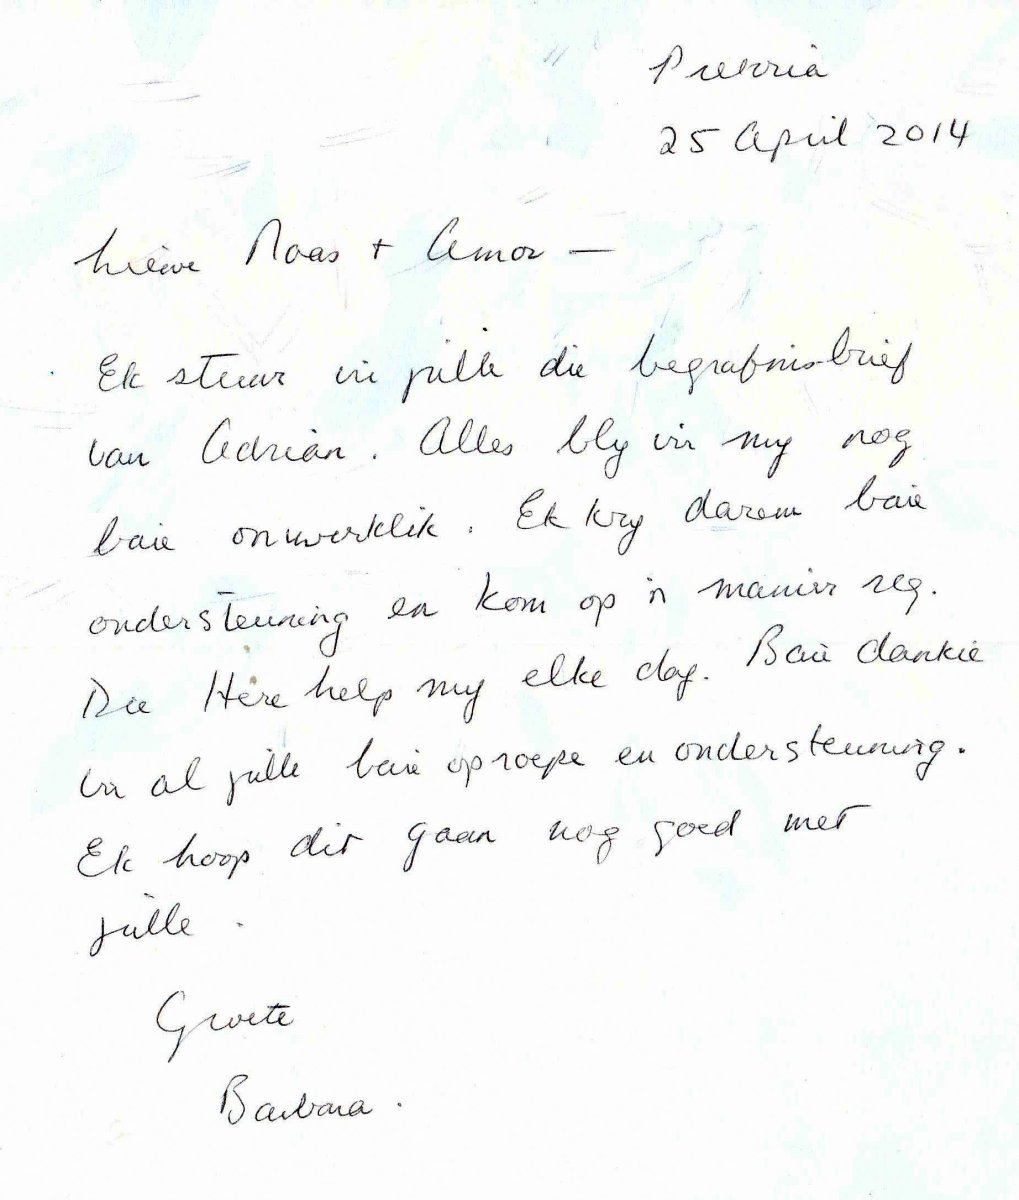 Pretoria
25 April 2014
Liewe Naas + Amor —
Ek stuur vir julle die begrafnisbrief
van Adriàn. Alles bly vir my nog
baie onwerklik. Ek kry darem baie
ondersteuning en kom op 'n manier reg.
Die Here help my elke dag. Baie dankie
vir al julle baie oproepe en ondersteuning.
Ek hoop dit gaan nog goed met
julle.
Groete
Barbara.